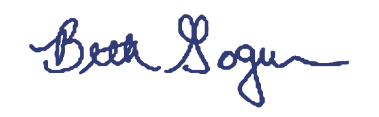 Beth Gogun